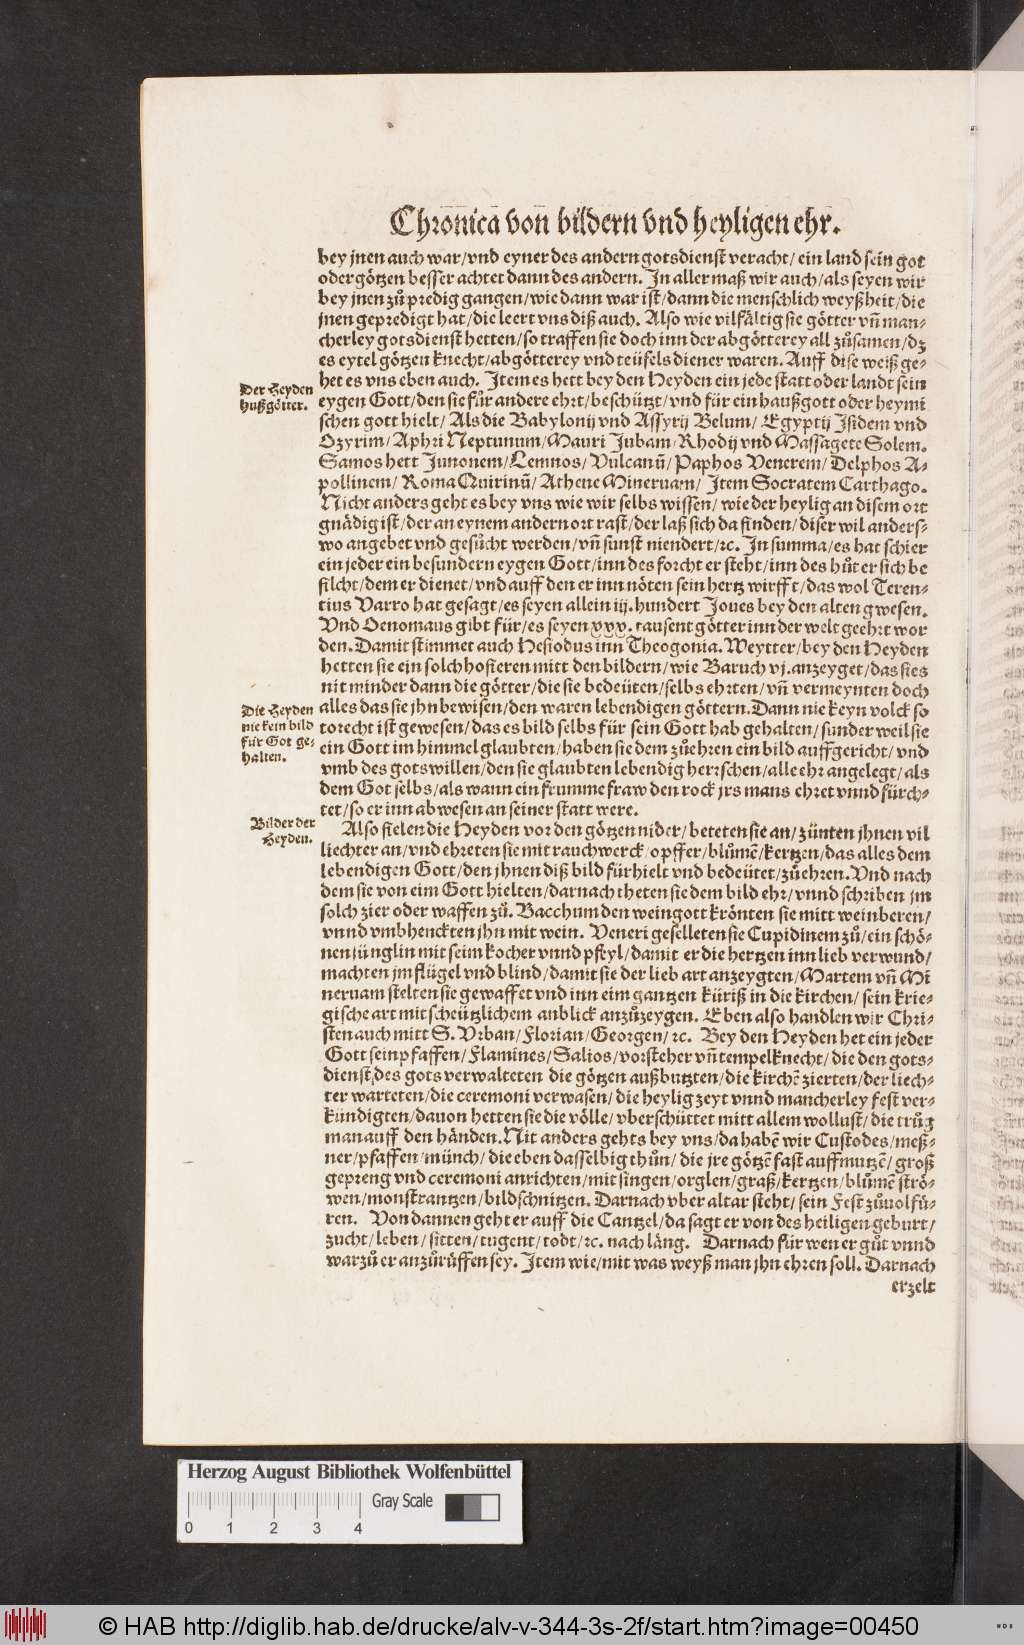 Chronica von bildern vnd heyligen ehr.
bey jnen auch war/vnd eyner des andern gotsdienst veracht/ein land sein got
oder götzen besser achtet dann des andern. In aller maß wir auch/als seyen wir
bey jnen zů predig gangen/wie dann war ist/dann die menschlich weyßheit/die
jnen gepredigt hat/die leert vns diß auch. Also wie vilfältig sie götter vñ man-
cherley gotsdienst hetten/so traffen sie doch inn der abgötterey all zůsamen/dz
es eytel götzen knecht/abgötterey vnd teüfels diener waren. Auff dise weiß ge-
het es vns eben auch. Item es hett bey den Heyden ein jede statt oder landt sein
Der Heyden
hußgötter.
eygen Gott/den sie für andere ehrt/beschützt/vnd für ein haußgott oder heymi
schen gott hielt/Als die Babylonij vnd Assyrij Belum/Egyptij Isidem vnd
Ozyrim/Aphri Neptunum/Mauri Jubam/Rhodij vnd Massagete Solem.
Samos hett Junonem/Lemnos/Vulcanũ/Paphos Venerem/Delphos A-
pollinem/Roma Quirinũ/Athene Mineruam/Item Socratem Carthago.
Nicht anders geht es bey vns wie wir selbs wissen/wie der heylig an disem ort
gnädig ist/der an eynem andern ort rast/der laß sich da finden/diser wil anders-
wo angebet vnd gesůcht werden/vñ sunst niendert/ꝛc. In summa/es hat schier
ein jeder ein besundern eygen Gott/inn des forcht er steht/inn des hůt er sich be
filcht/dem er dienet/vnd auff den er inn nöten sein hertz wirfft/das wol Teren-
tius Varro hat gesagt/es seyen allein iij.hundert Joues bey den alten gwesen.
Vnd Oenomaus gibt für/es seyen xxx.tausent götter inn der welt geehrt wor
den. Damit stimmet auch Hesiodus inn Theogonia. Weytter/bey den Heyden
hetten sie ein solch hofieren mitt den bildern/wie Baruch vj.anzeyget/das sies
nit minder dann die götter/die sie bedeüten/selbs ehrten/vñ vermeynten doch
Die Heyden
nie kein bild
für Got ge-
halten.
alles das sie jhn bewisen/den waren lebendigen göttern. Dann nie keyn volck so
torecht ist gewesen/das es bild selbs für sein Gott hab gehalten/sunder weil sie
ein Gott im himmel glaubten/haben sie dem zůehren ein bild auffgericht/vnd
vmb des gots willen/den sie glaubten lebendig herrschen/alle ehr angelegt/als
dem Got selbs/als wann ein frumme fraw den rock jrs mans ehret vnnd fürch-
tet/so er inn abwesen an seiner statt were.
Bilder der
Heyden.
Also fielen die Heyden vor den götzen nider/beteten sie an/zünten jhnen vil
liechter an/vnd ehreten sie mit rauchwerck/opffer/blůmẽ/kertzen/das alles dem
lebendigen Gott/den jhnen diß bild fürhielt vnd bedeütet/zůehren. Vnd nach
dem sie von eim Gott hielten/darnach theten sie dem bild ehr/vnnd schriben jm
solch zier oder waffen zů. Bacchum den weingott krönten sie mitt weinberen/
vnnd vmbhenckten jhn mit wein. Veneri geselleten sie Cupidinem zů/ein schö-
nen jünglin mit seim kocher vnnd pfeyl/damit er die hertzen inn lieb verwund/
machten jm flügel vnd blind/damit sie der lieb art anzeygten/Martem vñ Mi
neruam stelten sie gewaffet vnd inn eim gantzen küriß in die kirchen/sein krie-
gische art mit scheützlichem anblick anzůzeygen. Eben also handlen wir Chri-
sten auch mitt S. Vrban/Florian/Georgen/ꝛc. Bey den Heyden het ein jeder
Gott sein pfaffen/Flamines/Salios/vorsteher vñ tempelknecht/die den gots-
dienst des gots verwalteten die götzen außbutzten/die kirchẽ zierten/der liech-
ter warteten/die ceremoni verwasen/die heylig zeyt vnnd mancherley fest ver-
kündigten/dauon hetten sie die völle/vberschüttet mitt allem wollust/die trůg
man auff den händen. Nit anders gehts bey vns/da habẽ wir Custodes/meß-
ner/pfaffen/münch/die eben dasselbig thůn/die jre götzẽ fast auffmutzẽ/groß
gepreng vnd ceremoni anrichten/mit singen/orglen/graß/kertzen/blůmẽ strö-
wen/monstrantzen/bildschnitzen. Darnach vber altar steht/sein Fest zůuolfü-
ren. Von dannen geht er auff die Cantzel/da sagt er von des heiligen geburt/
zucht/leben/sitten/tugent/todt/ꝛc. nach läng. Darnach für wen er gůt vnnd
warzů er anzůrüffen sey. Item wie/mit was weyß man jhn ehren soll. Darnach
erzelt
Herzog August Bibliothek Wolfenbüttel
Gray Scale
0 1 2 3 4
© HAB http://diglib.hab.de/drucke/alv-v-344-3s-2f/start.htm?image=00450